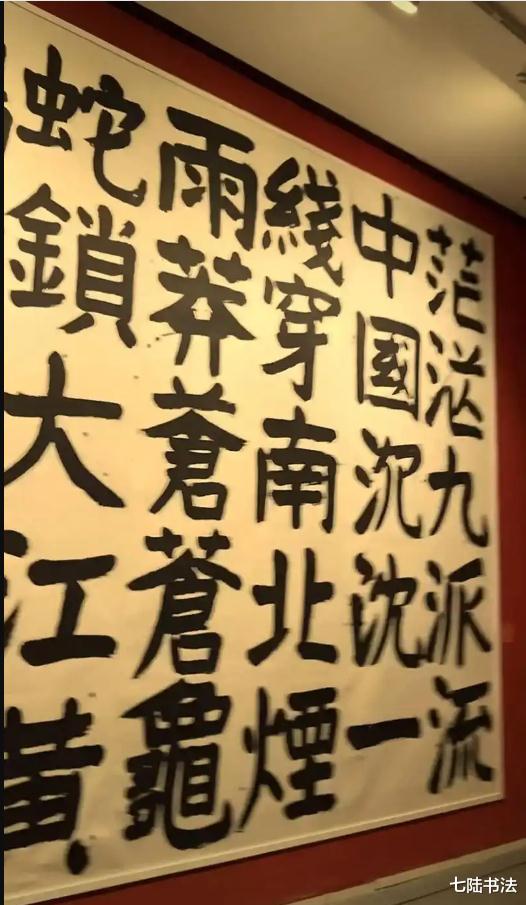 茫茫九派流
中國沉沈一
綫穿南北煙
雨莽蒼蒼龜
蛇鎖大江黃
七陆书法